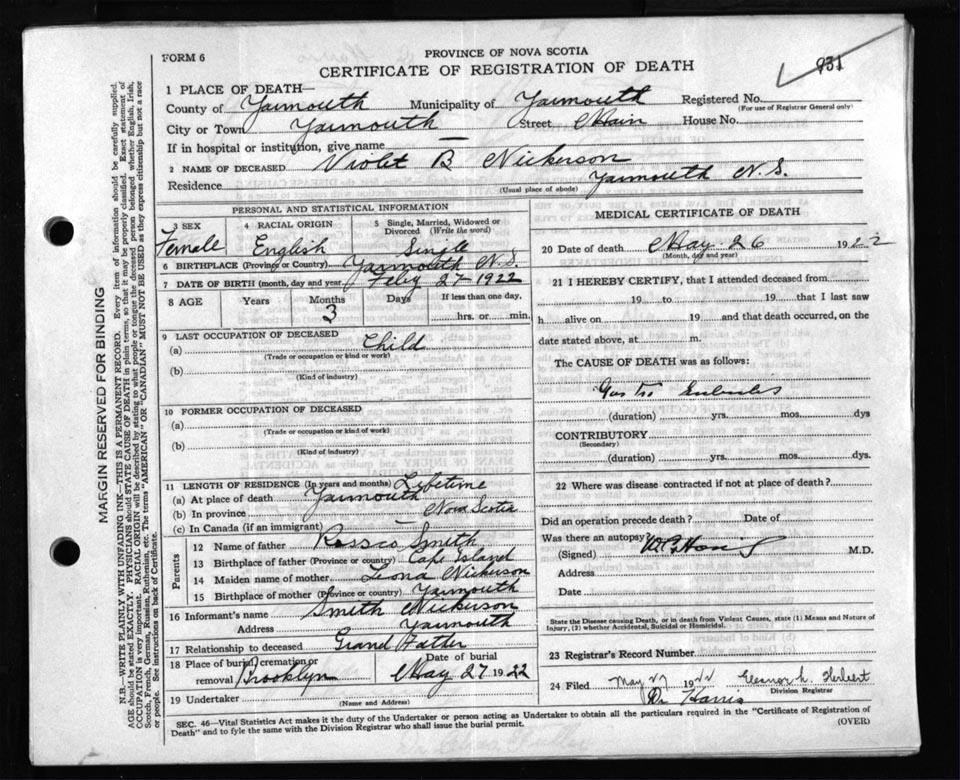 FORM 6
PROVINCE OF NOVA SCOTIA
CERTIFICATE OF REGISTRATION OF DEATH
931
1 PLACE OF DEATH—
County of Yarmouth Municipality of Yarmouth Registered No.
(For use of Registrar General only)
City or Town Yarmouth Street Main House No.
If in hospital or institution, give name —
2 NAME OF DECEASED Violet B Nickerson
Residence Yarmouth N.S.
(Usual place of abode)
PERSONAL AND STATISTICAL INFORMATION
3 SEX 4 RACIAL ORIGIN 5 Single, Married, Widowed or Divorced (Write the word)
Female English Single
6 BIRTHPLACE (Province or Country) Yarmouth N.S.
7 DATE OF BIRTH (month, day and year) Feby 27 1922
8 AGE Years Months Days If less than one day,
3 hrs. or min.
9 LAST OCCUPATION OF DECEASED
(a) Child
(Trade or occupation or kind or work)
(b)
(Kind of industry)
10 FORMER OCCUPATION OF DECEASED
(a)
(Trade or occupation or kind of work)
(b)
(Kind of industry)
11 LENGTH OF RESIDENCE (In years and months) Lifetime
(a) At place of death Yarmouth
(b) In province Nova Scotia
(c) In Canada (if an immigrant) —
Parents
12 Name of father Rossco Smith
13 Birthplace of father (Province or country) Cape Island
14 Maiden name of mother Leona Nickerson
15 Birthplace of mother (Province or country) Yarmouth
16 Informant's name Smith Nickerson
Address Yarmouth
17 Relationship to deceased Grand Father
18 Place of burial, cremation or removal Brooklyn Date of burial May 27 1922
19 Undertaker
(Name and Address)
MEDICAL CERTIFICATE OF DEATH
20 Date of death May 26 1922
(Month, day and year)
21 I HEREBY CERTIFY, that I attended deceased from
19 to 19 that I last saw
h alive on 19 and that death occurred, on the
date stated above, at m.
The CAUSE OF DEATH was as follows:
Gastro
(duration) yrs. mos. dys
CONTRIBUTORY
(Secondary)
(duration) yrs. mos. dys.
22 Where was disease contracted if not at place of death?
Did an operation precede death? Date of
Was there an autopsy
(Signed) M.D.
Address
Date
State the Disease causing Death, or in death from Violent Causes, state (1) Means and Nature of Injury, (2) whether Accidental, Suicidal or Homicidal.
23 Registrar's Record Number
24 Filed May 27 1922 Eleanor L. Herbert
Division Registrar
Dr Harris
SEC. 46—Vital Statistics Act makes it the duty of the Undertaker or person acting as Undertaker to obtain all the particulars required in the "Certificate of Registration of
Death" and to fyle the same with the Division Registrar who shall issue the burial permit. (OVER)
MARGIN RESERVED FOR BINDING
N.B.—WRITE PLAINLY WITH UNFADING INK—THIS IS A PERMANENT RECORD. Every item of information should be carefully supplied.
AGE should be stated EXACTLY. PHYSICIANS should STATE CAUSE OF DEATH in plain terms, so that it may be properly classified. Exact statement of
OCCUPATION is very important. RACIAL ORIGIN will be described by stating to what people or tongue the deceased person belonged whether English, Irish,
Scotch, French, German, Russian, Ruthenian, etc. The terms "AMERICAN" OR "CANADIAN" MUST NOT BE USED as they express citizenship but not a race
or people. See instructions on back of Certificate.